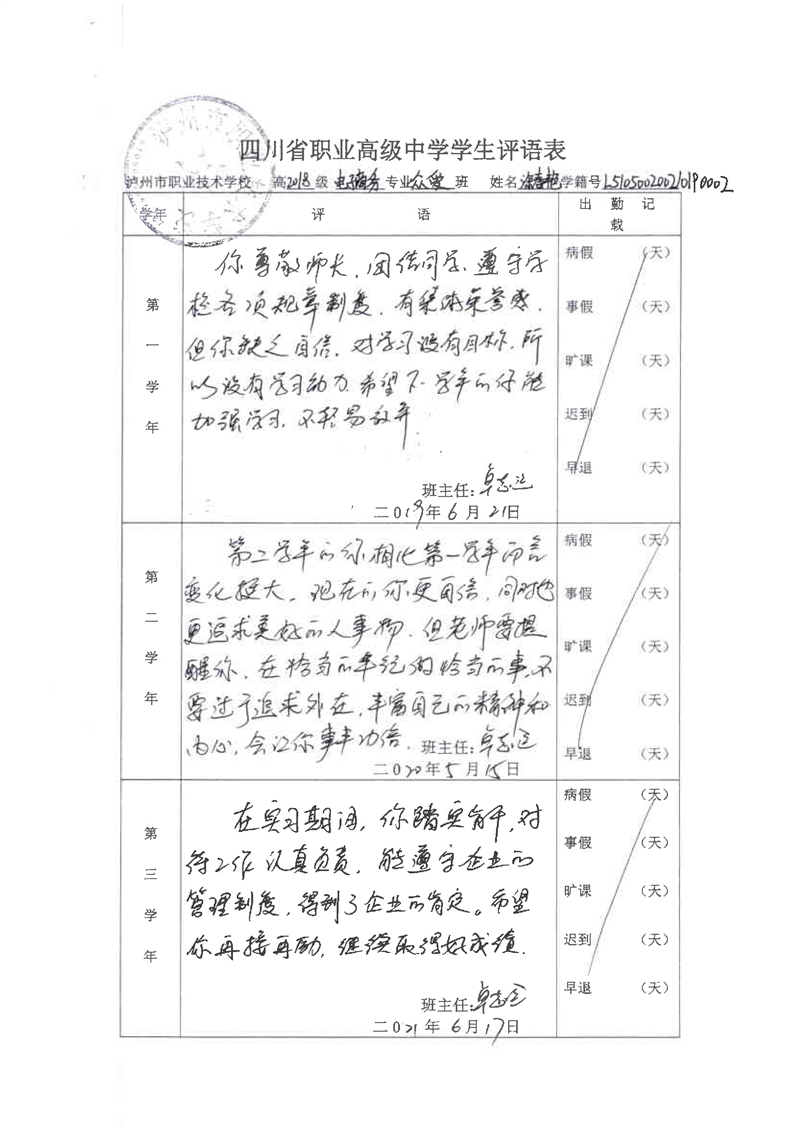 四川省职业高级中学学生评语表
泸州市职业技术学校 高2018级 电子商务专业 班 姓名 学籍号L510500200210190002
学年 评 语 出 勤 记 载
第一学年
你尊敬师长，团结同学，遵守学
校各项规章制度，有集体荣誉感，
但你缺乏自信，对学习没有目标，所
以没有学习动力，希望下一学年的你能
加强学习，不轻易放弃
班主任：卓志远
二019年6月21日
病假 （天）
事假 （天）
旷课 （天）
迟到 （天）
早退 （天）
第二学年
第二学年的你相比第一学年而言
变化挺大，现在的你更自信，同时也
更追求美好的人事物，但老师要提
醒你，在恰当的年纪做恰当的事，不
要过于追求外在，丰富自己的精神和
内心，会让你事半功倍。
班主任：卓志远
二020年5月15日
病假 （天）
事假 （天）
旷课 （天）
迟到 （天）
早退 （天）
第三学年
在实习期间，你踏实肯干，对
待工作认真负责，能遵守企业的
管理制度，得到了企业的肯定。希望
你再接再励，继续取得好成绩．
班主任：卓志远
二021年6月17日
病假 （天）
事假 （天）
旷课 （天）
迟到 （天）
早退 （天）